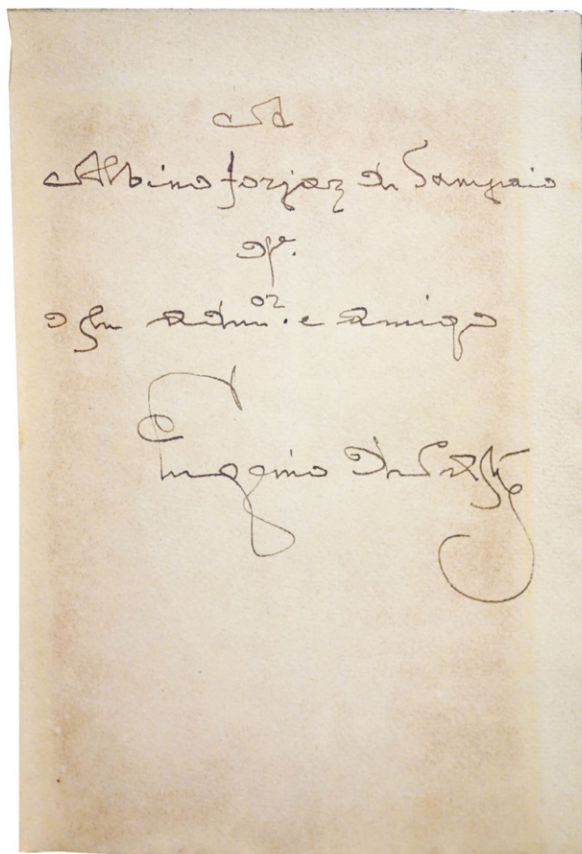 A
Albino Forjaz de Sampaio
of.
o seu admor. e amigo
Eugenio de Castro